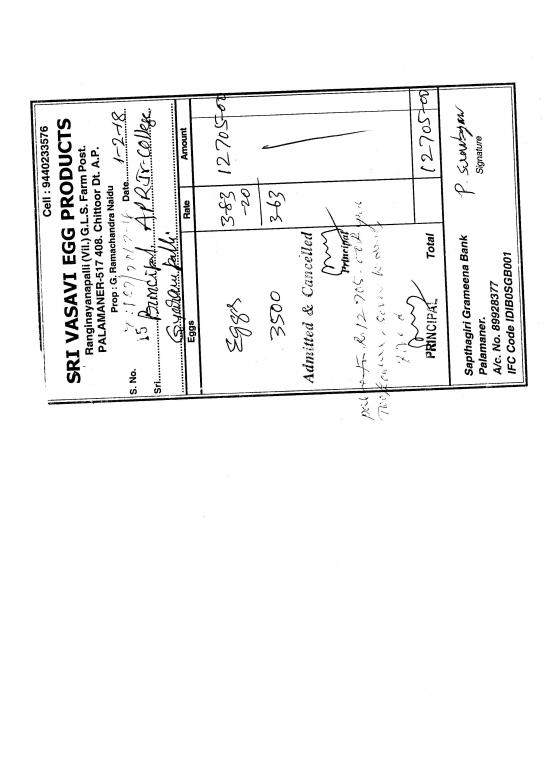 Cell : 9440233576
SRI VASAVI EGG PRODUCTS
Ranginayanapalli (Vil.) G.L.S. Farm Post.
PALAMANER-517 408. Chittoor Dt. A.P.
Prop : G. Ramachandra Naidu
S. No. 15 Date 1-2-18
Sri. Principal, APR Jr. College
Gyarampalli
Eggs Rate Amount
Eggs 3-83 12705-00
-20
3500 3-63
Admitted & Cancelled
Principal
12705-00
PRINCIPAL Total 12705-00
Sapthagiri Grameena Bank
Palamaner.
A/c. No. 89928377
IFC Code IDIB0SGB001
Signature